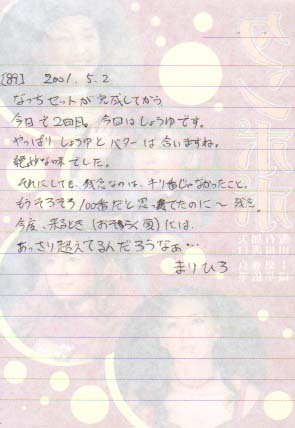 [89] 2001.5.2
なっちセットが完成してから
今日で2回目。今回はしょうゆです。
やっぱりしょうゆとバターは合いますね。
絶妙な味でした。
それにしても、残念なのは、キリ番じゃなかったこと。
もうそろそろ100番だと思ってたのに〜 残念。
今度、来るとき(おそらく夏)には、
あっさり超えてるんだろうなぁ…
まりひろ